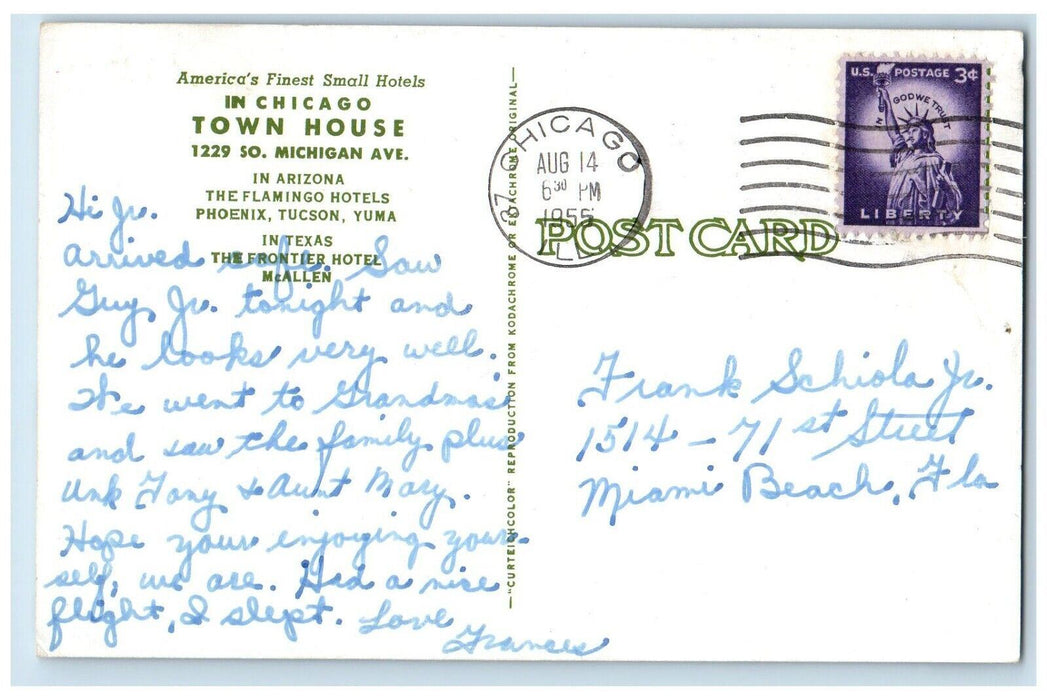 America's Finest Small Hotels
IN CHICAGO
TOWN HOUSE
1229 SO. MICHIGAN AVE.
IN ARIZONA
THE FLAMINGO HOTELS
PHOENIX, TUCSON, YUMA
IN TEXAS
THE FRONTIER HOTEL
McALLEN
Hi Jr.
Arrived safe. Saw
Guy Jr. tonight and
he looks very well.
We went to Grandmas
and saw the family plus
Unk Tony & Aunt Mary.
Hope your enjoying your-
self, we are. Had a nice
flight, I slept. Love
Frances
"CURTEICHCOLOR" REPRODUCTION FROM KODACHROME OR EKTACHROME ORIGINAL
CHICAGO
37
AUG 14
6 30 PM
1955
ILL
POST CARD
U.S. POSTAGE 3¢
IN GOD WE TRUST
LIBERTY
Frank Schiola Jr.
1514 - 71st Street
Miami Beach, Fla